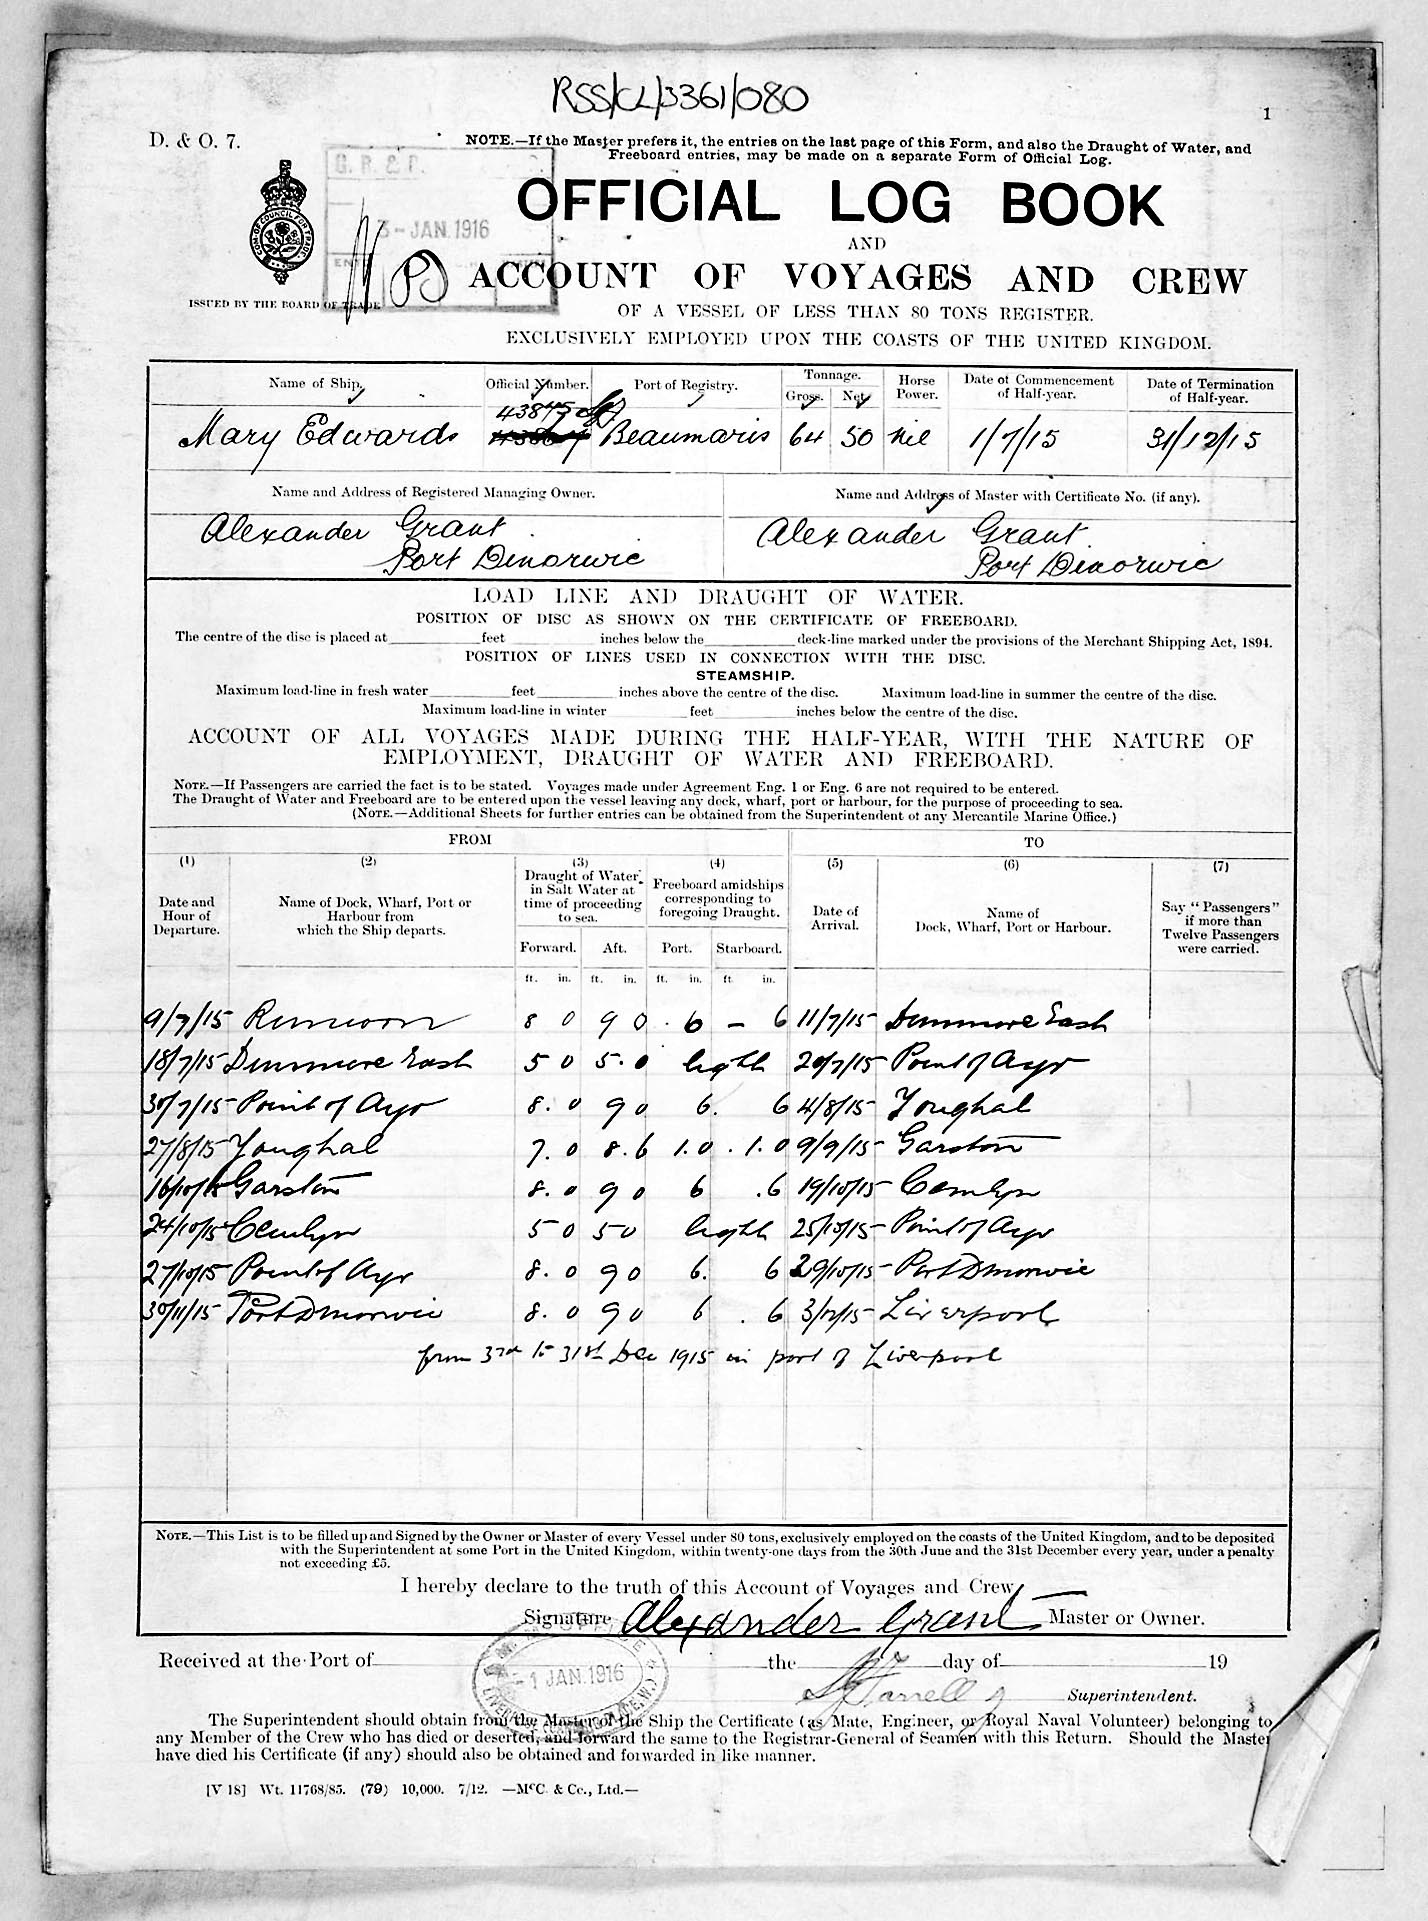 RSS/CL/3361/080
1
D. & O. 7.
NOTE.—If the Master prefers it, the entries on the last page of this Form, and also the Draught of Water, and
Freeboard entries, may be made on a separate Form of Official Log.
G. R. & P.
3-JAN.1916
OFFICIAL LOG BOOK
AND
ACCOUNT OF VOYAGES AND CREW
ISSUED BY THE BOARD OF TRADE
OF A VESSEL OF LESS THAN 80 TONS REGISTER.
EXCLUSIVELY EMPLOYED UPON THE COASTS OF THE UNITED KINGDOM.
Name of Ship. Official Number. Port of Registry. Tonnage. Gross. Net. Horse Power. Date of Commencement of Half-year. Date of Termination of Half-year.
43875
Mary Edwards Beaumaris 64 50 Nil 1/7/15 31/12/15
Name and Address of Registered Managing Owner. Name and Address of Master with Certificate No. (if any).
Alexander Grant Alexander Grant
Port Dinorwic Port Dinorwic
LOAD LINE AND DRAUGHT OF WATER.
POSITION OF DISC AS SHOWN ON THE CERTIFICATE OF FREEBOARD.
The centre of the disc is placed at feet inches below the deck-line marked under the provisions of the Merchant Shipping Act, 1894.
POSITION OF LINES USED IN CONNECTION WITH THE DISC.
STEAMSHIP.
Maximum load-line in fresh water feet inches above the centre of the disc. Maximum load-line in summer the centre of the disc.
Maximum load-line in winter feet inches below the centre of the disc.
ACCOUNT OF ALL VOYAGES MADE DURING THE HALF-YEAR, WITH THE NATURE OF
EMPLOYMENT, DRAUGHT OF WATER AND FREEBOARD.
NOTE.—If Passengers are carried the fact is to be stated. Voyages made under Agreement Eng. 1 or Eng. 6 are not required to be entered.
The Draught of Water and Freeboard are to be entered upon the vessel leaving any dock, wharf, port or harbour, for the purpose of proceeding to sea.
(NOTE.—Additional Sheets for further entries can be obtained from the Superintendent of any Mercantile Marine Office.)
FROM TO
(1) (2) (3) (4) (5) (6) (7)
Date and Hour of Departure. Name of Dock, Wharf, Port or Harbour from which the Ship departs. Draught of Water in Salt Water at time of proceeding to sea. Freeboard amidships corresponding to foregoing Draught. Date of Arrival. Name of Dock, Wharf, Port or Harbour. Say "Passengers" if more than Twelve Passengers were carried.
Forward. Aft. Port. Starboard.
ft. in. ft. in. ft. in. ft. in.
9/7/15 Runcorn 8 0 9 0 . 6 – 6 11/7/15 Dunmore East
18/7/15 Dunmore East 5 0 5. 0 light 20/7/15 Point of Ayr
30/7/15 Point of Ayr 8. 0 9 0 6. 6 4/8/15 Youghal
27/8/15 Youghal 7. 0 8. 6 1. 0 . 1. 0 9/9/15 Garston
16/10/15 Garston 8. 0 9 0 6 .6 19/10/15 Cemlyn
24/10/15 Cemlyn 5 0 5 0 light 25/10/15 Point of Ayr
27/10/15 Point of Ayr 8. 0 9 0 6. 6 29/10/15 Port Dinorwic
30/11/15 Port Dinorwic 8. 0 9 0 6 . 6 3/12/15 Liverpool
from 3rd to 31st Dec 1915 in port of Liverpool
NOTE.—This List is to be filled up and Signed by the Owner or Master of every Vessel under 80 tons, exclusively employed on the coasts of the United Kingdom, and to be deposited
with the Superintendent at some Port in the United Kingdom, within twenty-one days from the 30th June and the 31st December every year, under a penalty
not exceeding £5.
I hereby declare to the truth of this Account of Voyages and Crew,
Signature Alexander Grant Master or Owner.
Received at the Port of the day of 19
1 JAN.1916
Farrell Superintendent.
The Superintendent should obtain from the Master of the Ship the Certificate (as Mate, Engineer, or Royal Naval Volunteer) belonging to
any Member of the Crew who has died or deserted, and forward the same to the Registrar-General of Seamen with this Return. Should the Master
have died his Certificate (if any) should also be obtained and forwarded in like manner.
[V 18] Wt. 11768/85. (79) 10,000. 7/12. —McC. & Co., Ltd.—